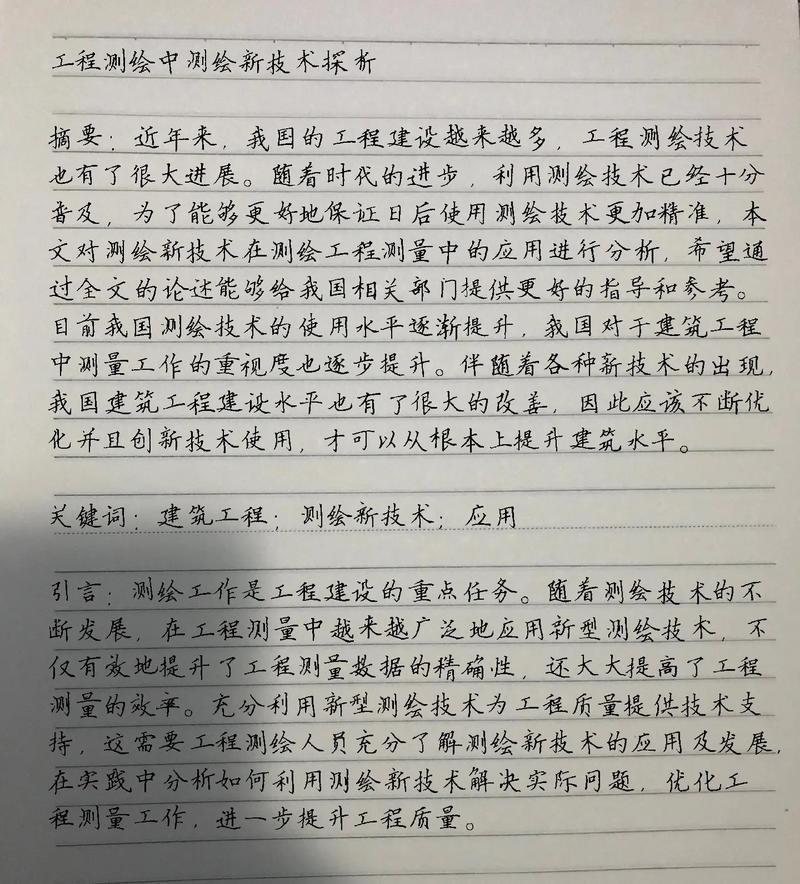 工程测绘中测绘新技术探析
摘要：近年来，我国的工程建设越来越多，工程测绘技术
也有了很大进展。随着时代的进步，利用测绘技术已经十分
普及，为了能够更好地保证日后使用测绘技术更加精准，本
文对测绘新技术在测绘工程测量中的应用进行分析，希望通
过全文的论述能够给我国相关部门提供更好的指导和参考。
目前我国测绘技术的使用水平逐渐提升，我国对于建筑工程
中测量工作的重视度也逐步提升。伴随着各种新技术的出现，
我国建筑工程建设水平也有了很大的改善，因此应该不断优
化并且创新技术使用，才可以从根本上提升建筑水平。
关键词：建筑工程；测绘新技术；应用
引言：测绘工作是工程建设的重点任务。随着测绘技术的不
断发展，在工程测量中越来越广泛地应用新型测绘技术，不
仅有效地提升了工程测量数据的精确性，还大大提高了工程
测量的效率。充分利用新型测绘技术为工程质量提供技术支
持，这需要工程测绘人员充分了解测绘新技术的应用及发展，
在实践中分析如何利用测绘新技术解决实际问题，优化工
程测量工作，进一步提升工程质量。